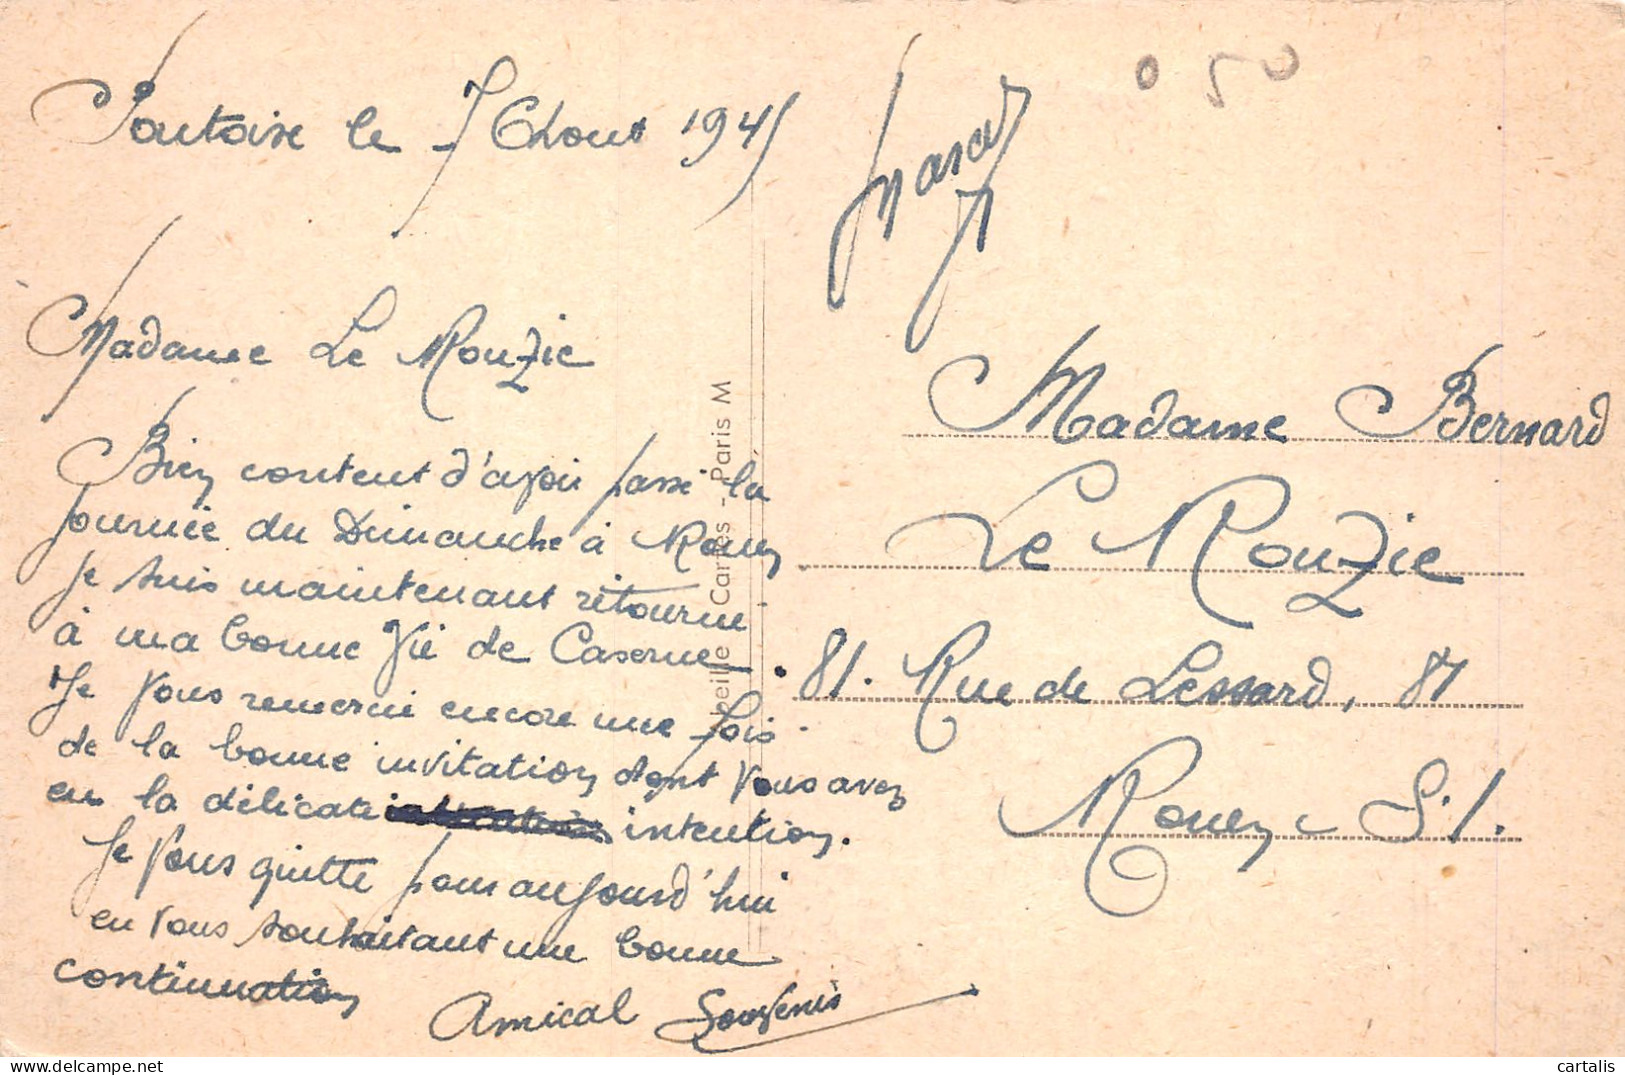 Pontoise le 7 Aout 1945
Madame Le Rouzic
Bien content d'avoir passé la
journée du Dimanche à Rouen
je suis maintenant retourné
à ma bonne vie de Caserne.
Je vous remercie encore une fois
de la bonne invitation dont vous avez
eu la délicate intention.
Je vous quitte pour aujourd'hui
en vous souhaitant une bonne
continuation
Amical Souvenir
050
Madame Bernard
Le Rouzic
81. Rue de Lessard, 81
Rouen - S.I.
Cartes - Paris M
cartalis